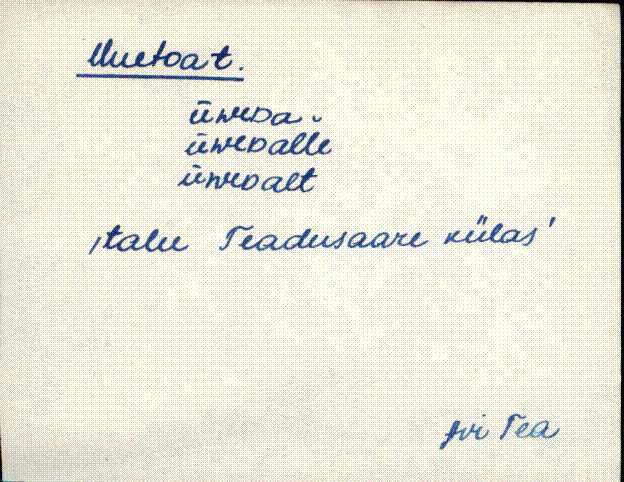 Uuetoa t.
ūwᴇᴅa
ūwᴇᴅalle
ūwᴇᴅalt
,talu Teadusaare külas'
Avi Tea